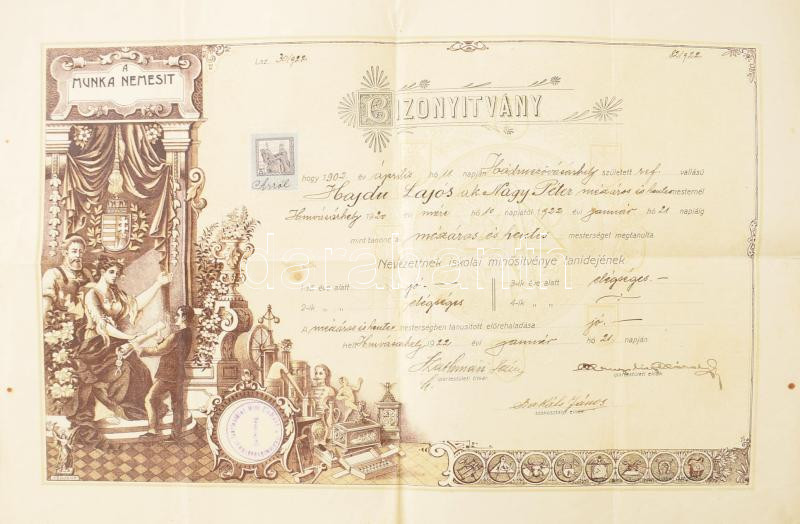 A
MUNKA NEMESIT
Lsz. 30/922
82/922
BIZONYITVÁNY
Arról
hogy 1902 év április hó 11 napján Hódmezővásárhely született ref. vallású
Hajdu Lajos a.k. Nagy Péter mészáros és hentes mesternél
Hmvásárhely 1920 évi hó 10 napjától 1922 évi január hó 21 napjáig
mint tanonc a mészáros és hentes mesterséget megtanulta.
Nevezettnek iskolai minősítvénye tanidejének
1-ső éve alatt jó.— 3-ik éve alatt elégséges—
2-ik „ „ elégséges 4-ik „ „
A mészáros és hentes mesterségben tanusított előrehaladása jó.—
Kelt Hmvásárhely 1922 évi január hó 21 napján.
ipartestületi titkár.
ipartestületi elnök.
János
szakosztályi elnök